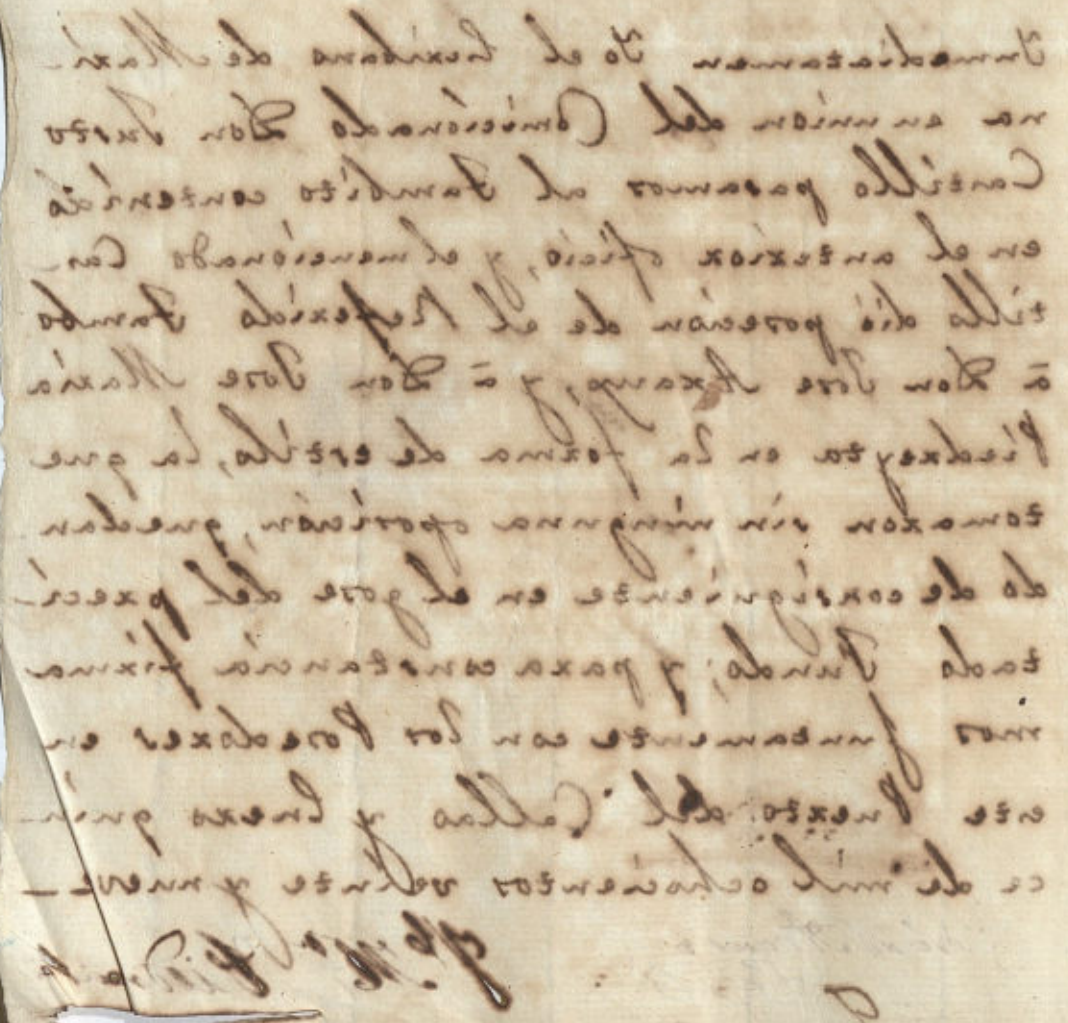 Inmediatamen Yo el Escribano de Mari-
na en union del Comicionado Don Justo
Castillo pasamos al Tambito contenido
en el anterior oficio, y el mencionado Cas-
tillo dió posecion de el Referido Tambo
á Don Jose Aramp, y á Don Jose Maria
Piedreyta en la forma de estilo, la que
tomaron sin ninguna oposicion, quedan
do de consiguiente en el gose del preci-
tado Fundo; y para constancia firma
mos juntamente con los Poseedores en
este Puerto del Callao y Enero quin
ce de mil ochocientos veinte y nueve-